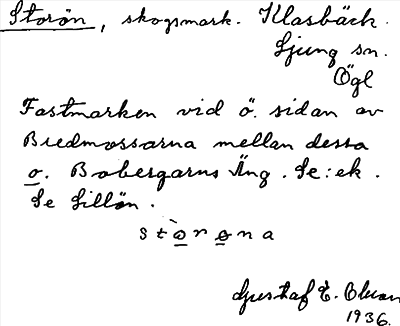 Storön, skogsmark. Klasbäck.
Ljung sn.
Ögl
Fastmarken vid ö. sidan av
Bredmossarna mellan dessa
o. Bobergarns Äng. Se: ek.
Se Lillön.
stòrøna
Gustaf E. Olson
1936.